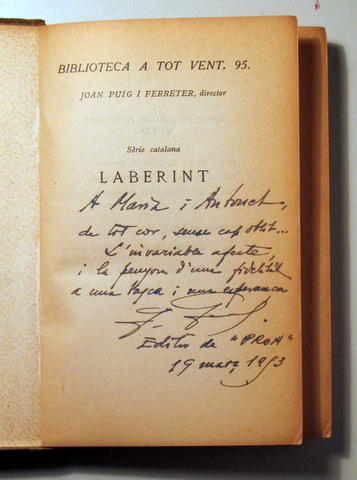 BIBLIOTECA A TOT VENT. 95.
JOAN PUIG I FERRETER, director
Sèrie catalana
LABERINT
A Maria i Antonet,
de tot cor, sense cap oblit...
L'invariable afecte,
i la penyora d'una fidelitat
a una tasca i una esperança
Editor de "PROA"
19 març 1953